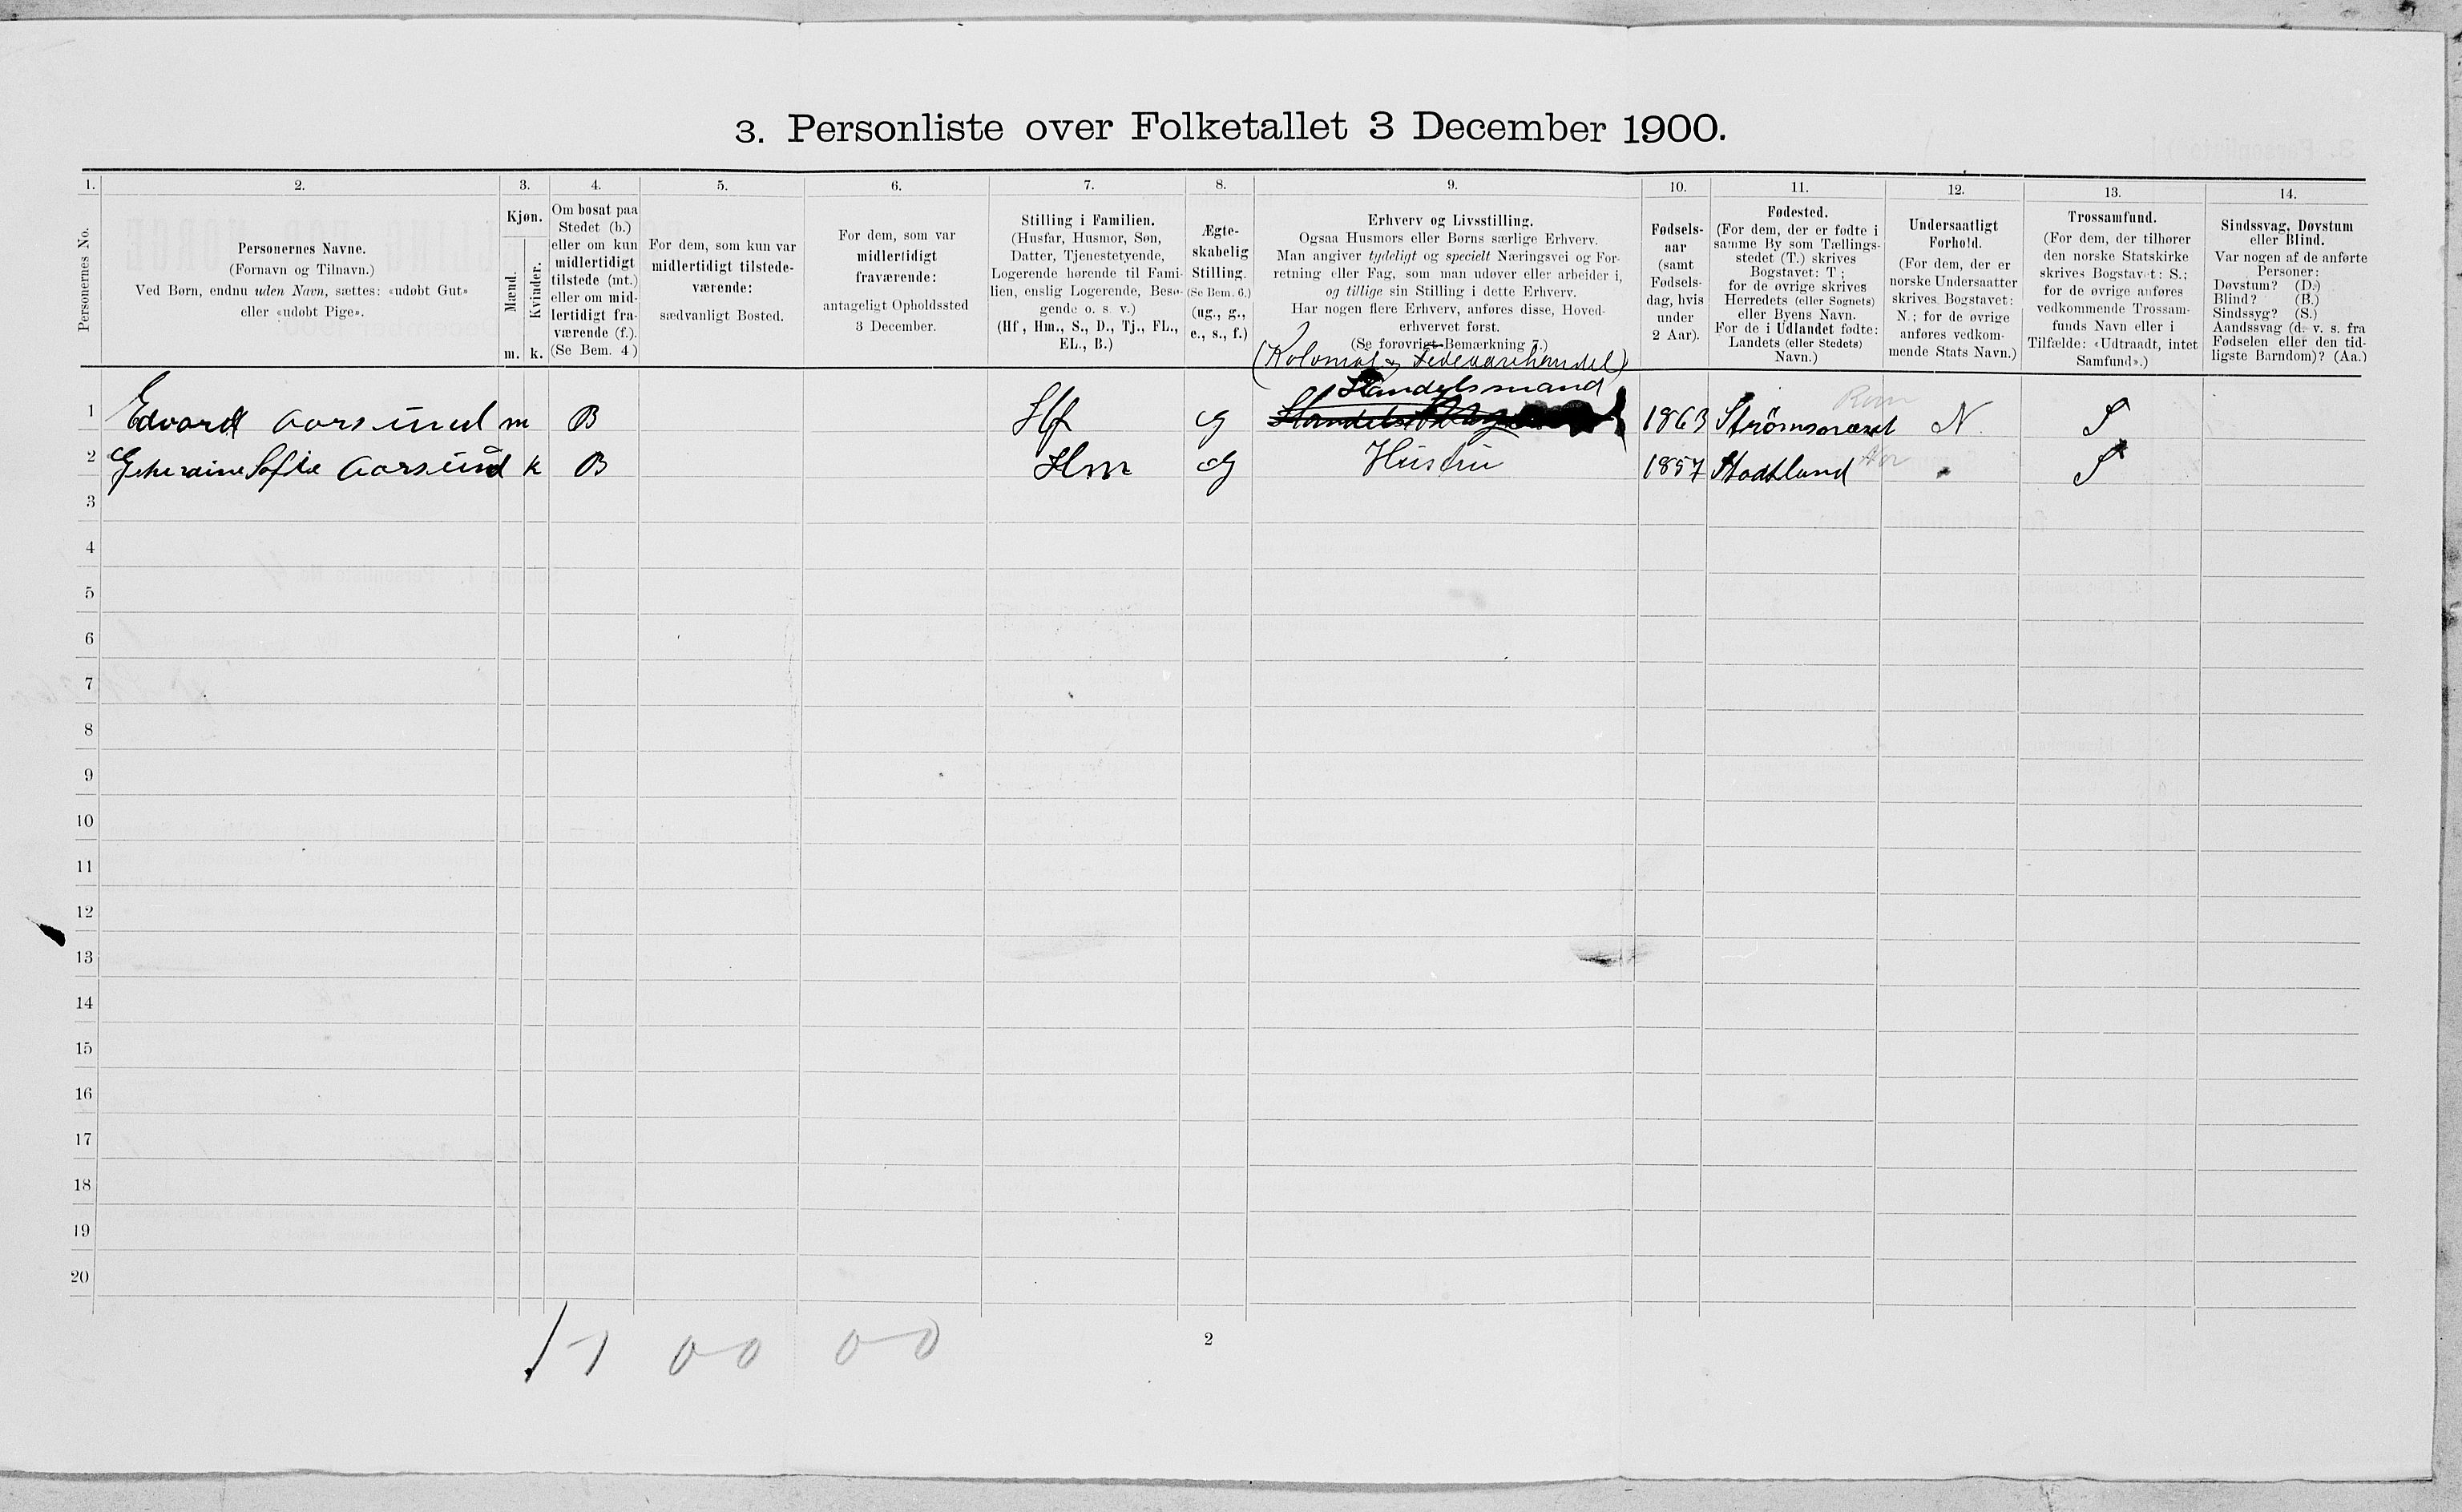 3. Personliste over Folketallet 3 December 1900.
1. 2. 3. 4. 5. 6. 7. 8. 9. 10. 11. 12. 13. 14.
Personernes No.
Personernes Navne.
(Fornavn og Tilnavn.)
Ved Børn, endnu uden Navn, sættes: «udøbt Gut»
eller «udøbt Pige».
Kjøn.
Mænd.
Kvinder.
m. k.
Om bosat paa
Stedet (b.)
eller om kun
midlertidigt
tilstede (mt.)
eller om mid-
lertidigt fra-
værende (f.).
(Se Bem. 4)
For dem, som kun var
midlertidigt tilstede-
værende:
sædvanligt Bosted.
For dem, som var
midlertidigt
fraværende:
antageligt Opholdssted
3 December.
Stilling i Familien.
(Husfar, Husmor, Søn,
Datter, Tjenestetyende,
Logerende hørende til Fami-
lien, enslig Logerende, Besø-
gende o. s. v.)
(Hf, Hm., S., D., Tj., FL.,
EL., B.)
Ægte-
skabelig
Stilling.
(Se Bem. 6.)
(ug., g.,
e., s., f.)
Erhverv og Livsstilling.
Ogsaa Husmors eller Børns særlige Erhverv.
Man angiver tydeligt og specielt Næringsvei og For-
retning eller Fag, som man udøver eller arbeider i,
og tillige sin Stilling i dette Erhverv.
Har nogen flere Erhverv, anføres disse, Hoved-
erhvervet først.
(Se forøvrigt Bemærkning 7.)
Fødsels-
aar
(samt
Fødsels-
dag, hvis
under
2 Aar).
Fødested.
(For dem, der er fødte i
samme By som Tællings-
stedet (T.) skrives
Bogstavet: T;
for de øvrige skrives
Herredets (eller Sognets)
eller Byens Navn.
For de i Udlandet fødte:
Landets (eller Stedets)
Navn.)
Undersaatligt
Forhold.
(For dem, der er
norske Undersaatter
skrives Bogstavet:
N.; for de øvrige
anføres vedkom-
mende Stats Navn.)
Trossamfund.
(For dem, der tilhører
den norske Statskirke
skrives Bogstavet: S.;
for de øvrige anføres
vedkommende Trossam-
funds Navn eller i
Tilfælde: «Udtraadt, intet
Samfund».)
Sindssvag, Døvstum
eller Blind.
Var nogen af de anførte
Personer:
Døvstum? (D.)
Blind? (B.)
Sindssyg? (S.)
Aandssvag (d. v. s. fra
Fødselen eller den tid-
ligste Barndom)? (Aa.)
(Kolonial & Fedevarehandel)
Handelsmand
1 Edvard Aarsund m B Hf g 1863 Strömsnæset N. S
2 Sofie Aarsund k B Hm g Hustru 1857 Stadtland " S
3
4
5
6
7
8
9
10
11
12
13
14
15
16
17
18
19
20
1-1 0-0 0-0
2